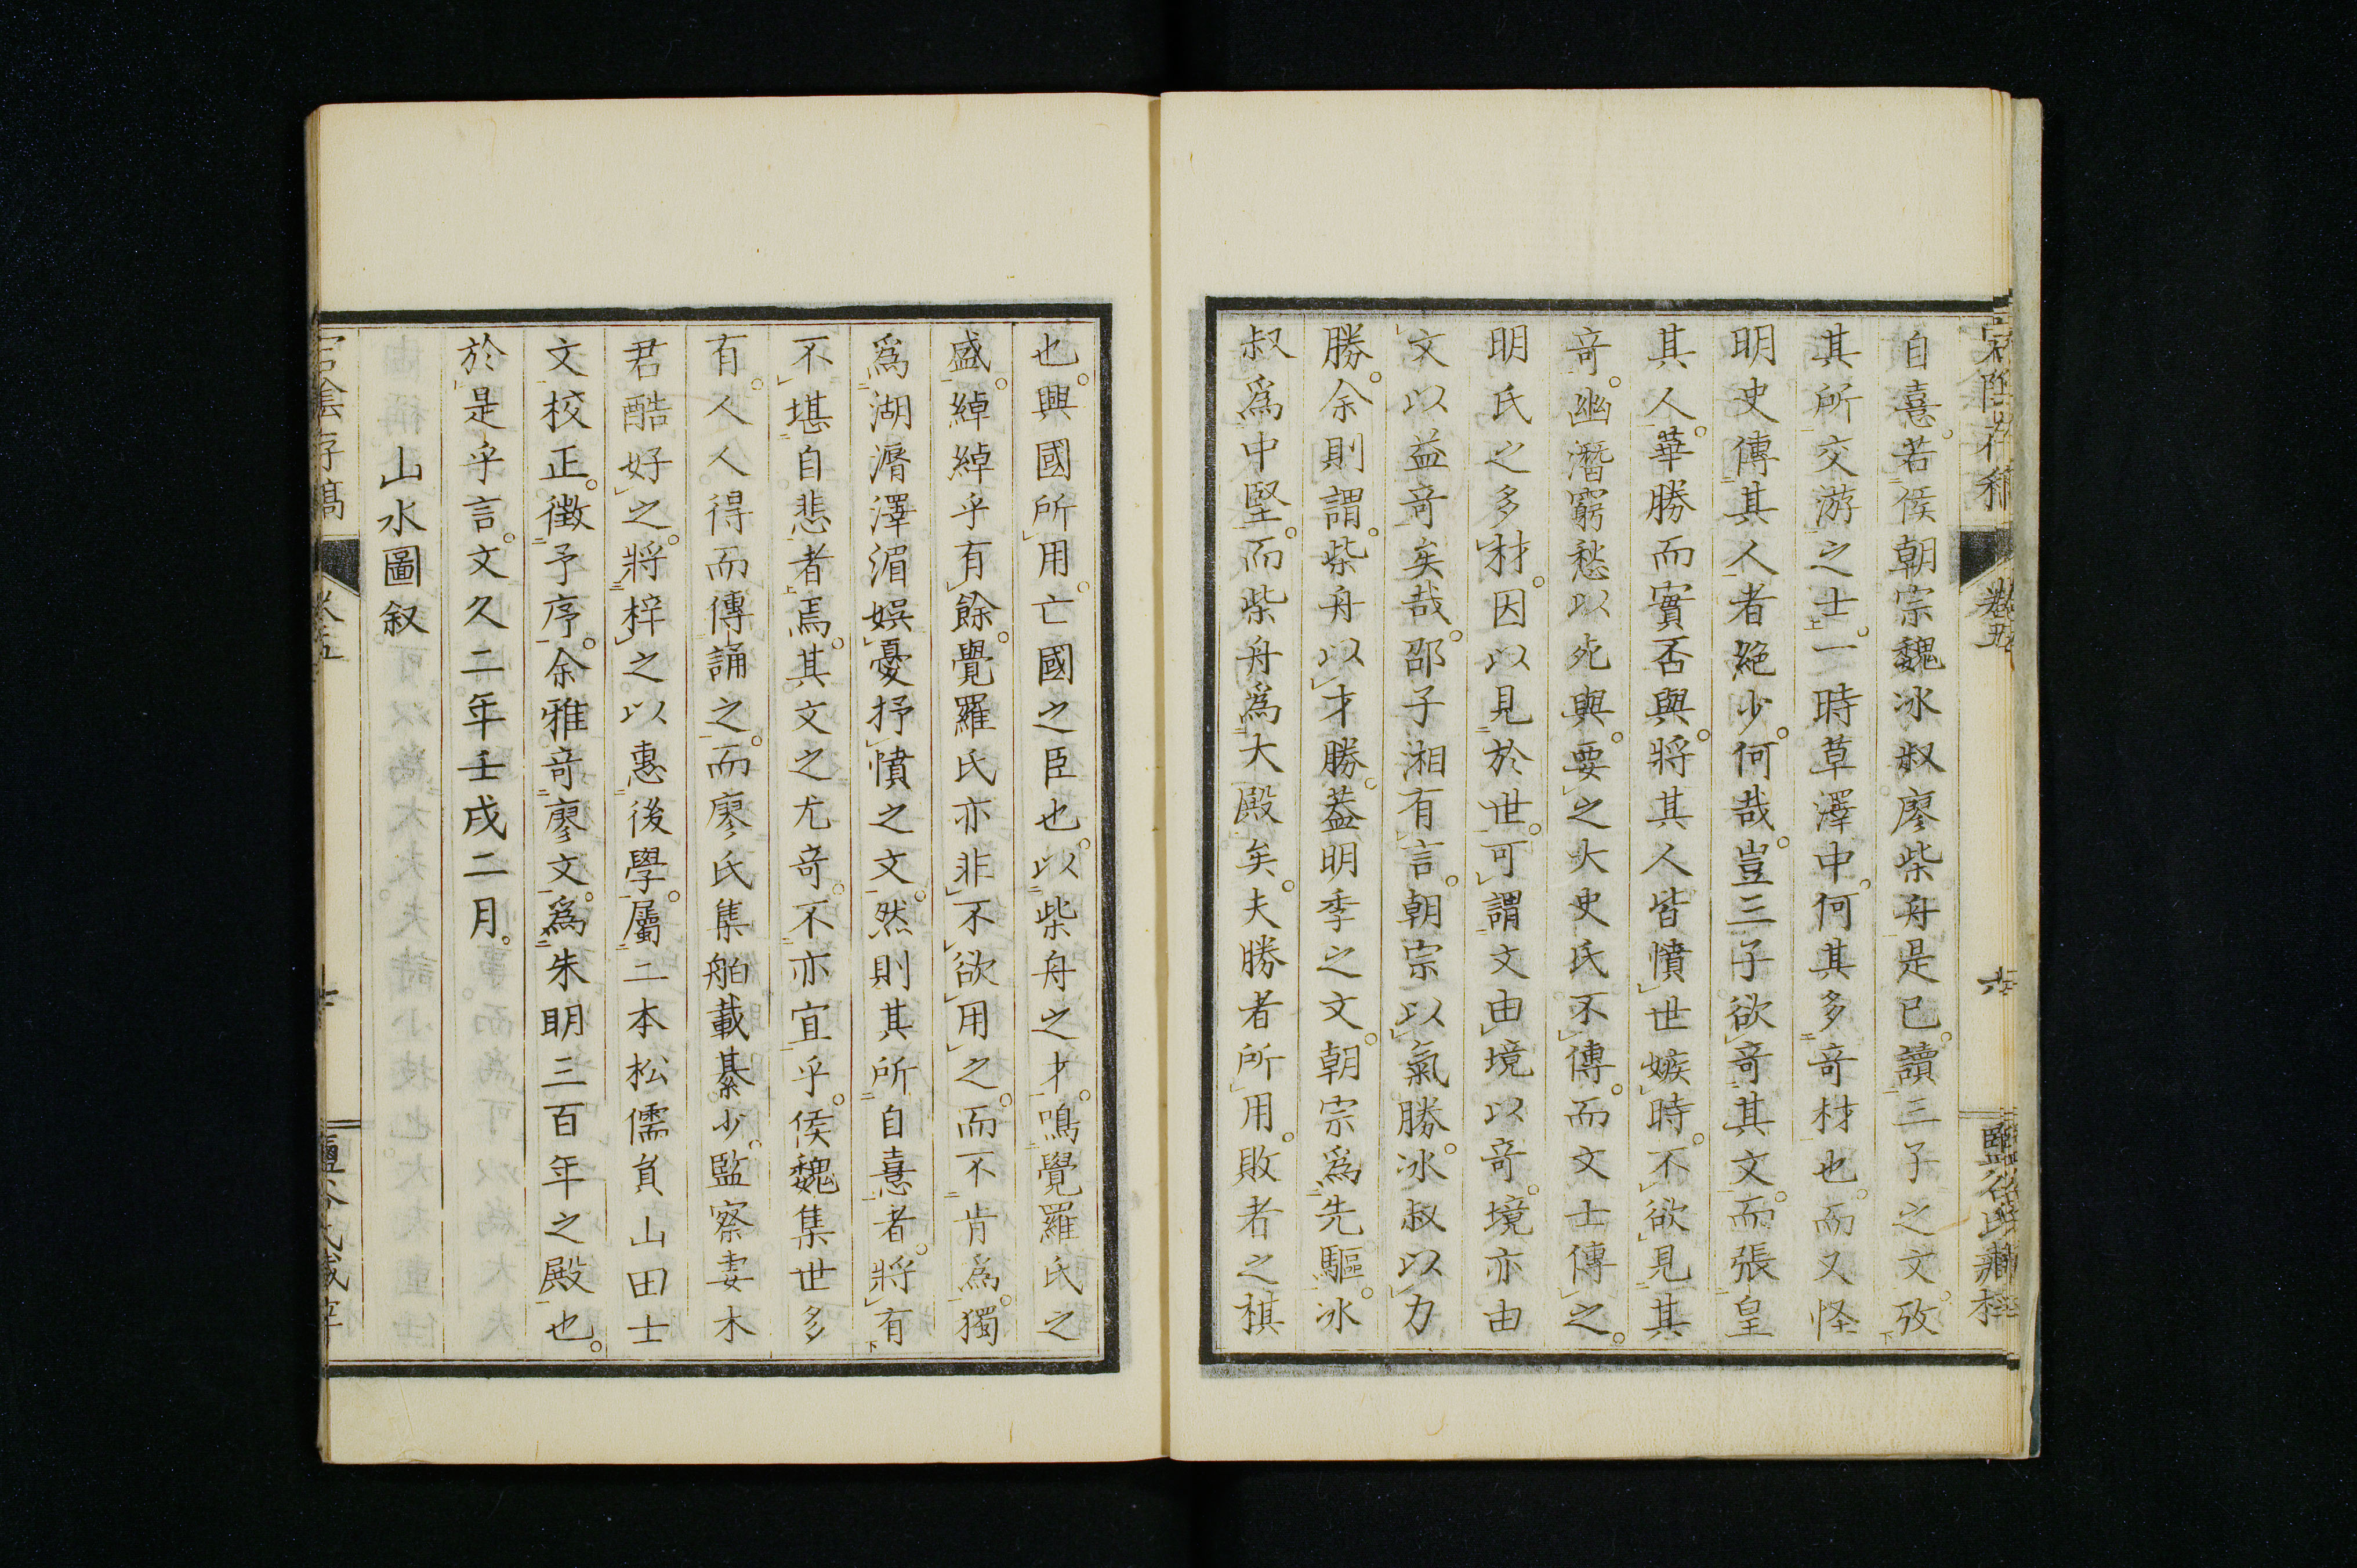 自憙若侯朝宗魏冰叔廖柴舟是已讀三子之文攷
其所交游之士一時草澤中何其多竒材也而又怪
明史傳其人者絕少何哉豈三子欲竒其文而張皇
其人華勝而實否與將其人皆憤世嫉時不欲見其
竒幽潛窮愁以死與要之大史氏不傳而文士傳之
明氏之多材因以見於世可謂文由境以竒境亦由
文以益竒矣哉邵子湘有言朝宗以氣勝冰叔以力
勝余則謂柴舟以才勝蓋明季之文朝宗爲先驅冰
叔爲中堅而柴舟爲大殿矣夫勝者所用敗者之棋
也興國所用亡國之臣也以柴舟之才鳴覺羅氏之
盛綽綽乎有餘覺羅氏亦非不欲用之而不肯爲獨
爲湖漘澤湄娯憂抒憤之文然則其所自憙者將有
不堪自悲者焉其文之尤竒不亦宜乎侯魏集世多
有人人得而傳誦之而廖氏集舶載綦少監察妻木
君酷好之將梓之以惠後學屬二本松儒員山田士
文校正徵予序余雅竒廖文爲朱明三百年之殿也
於是乎言文久二年壬戌二月
山水圖叙